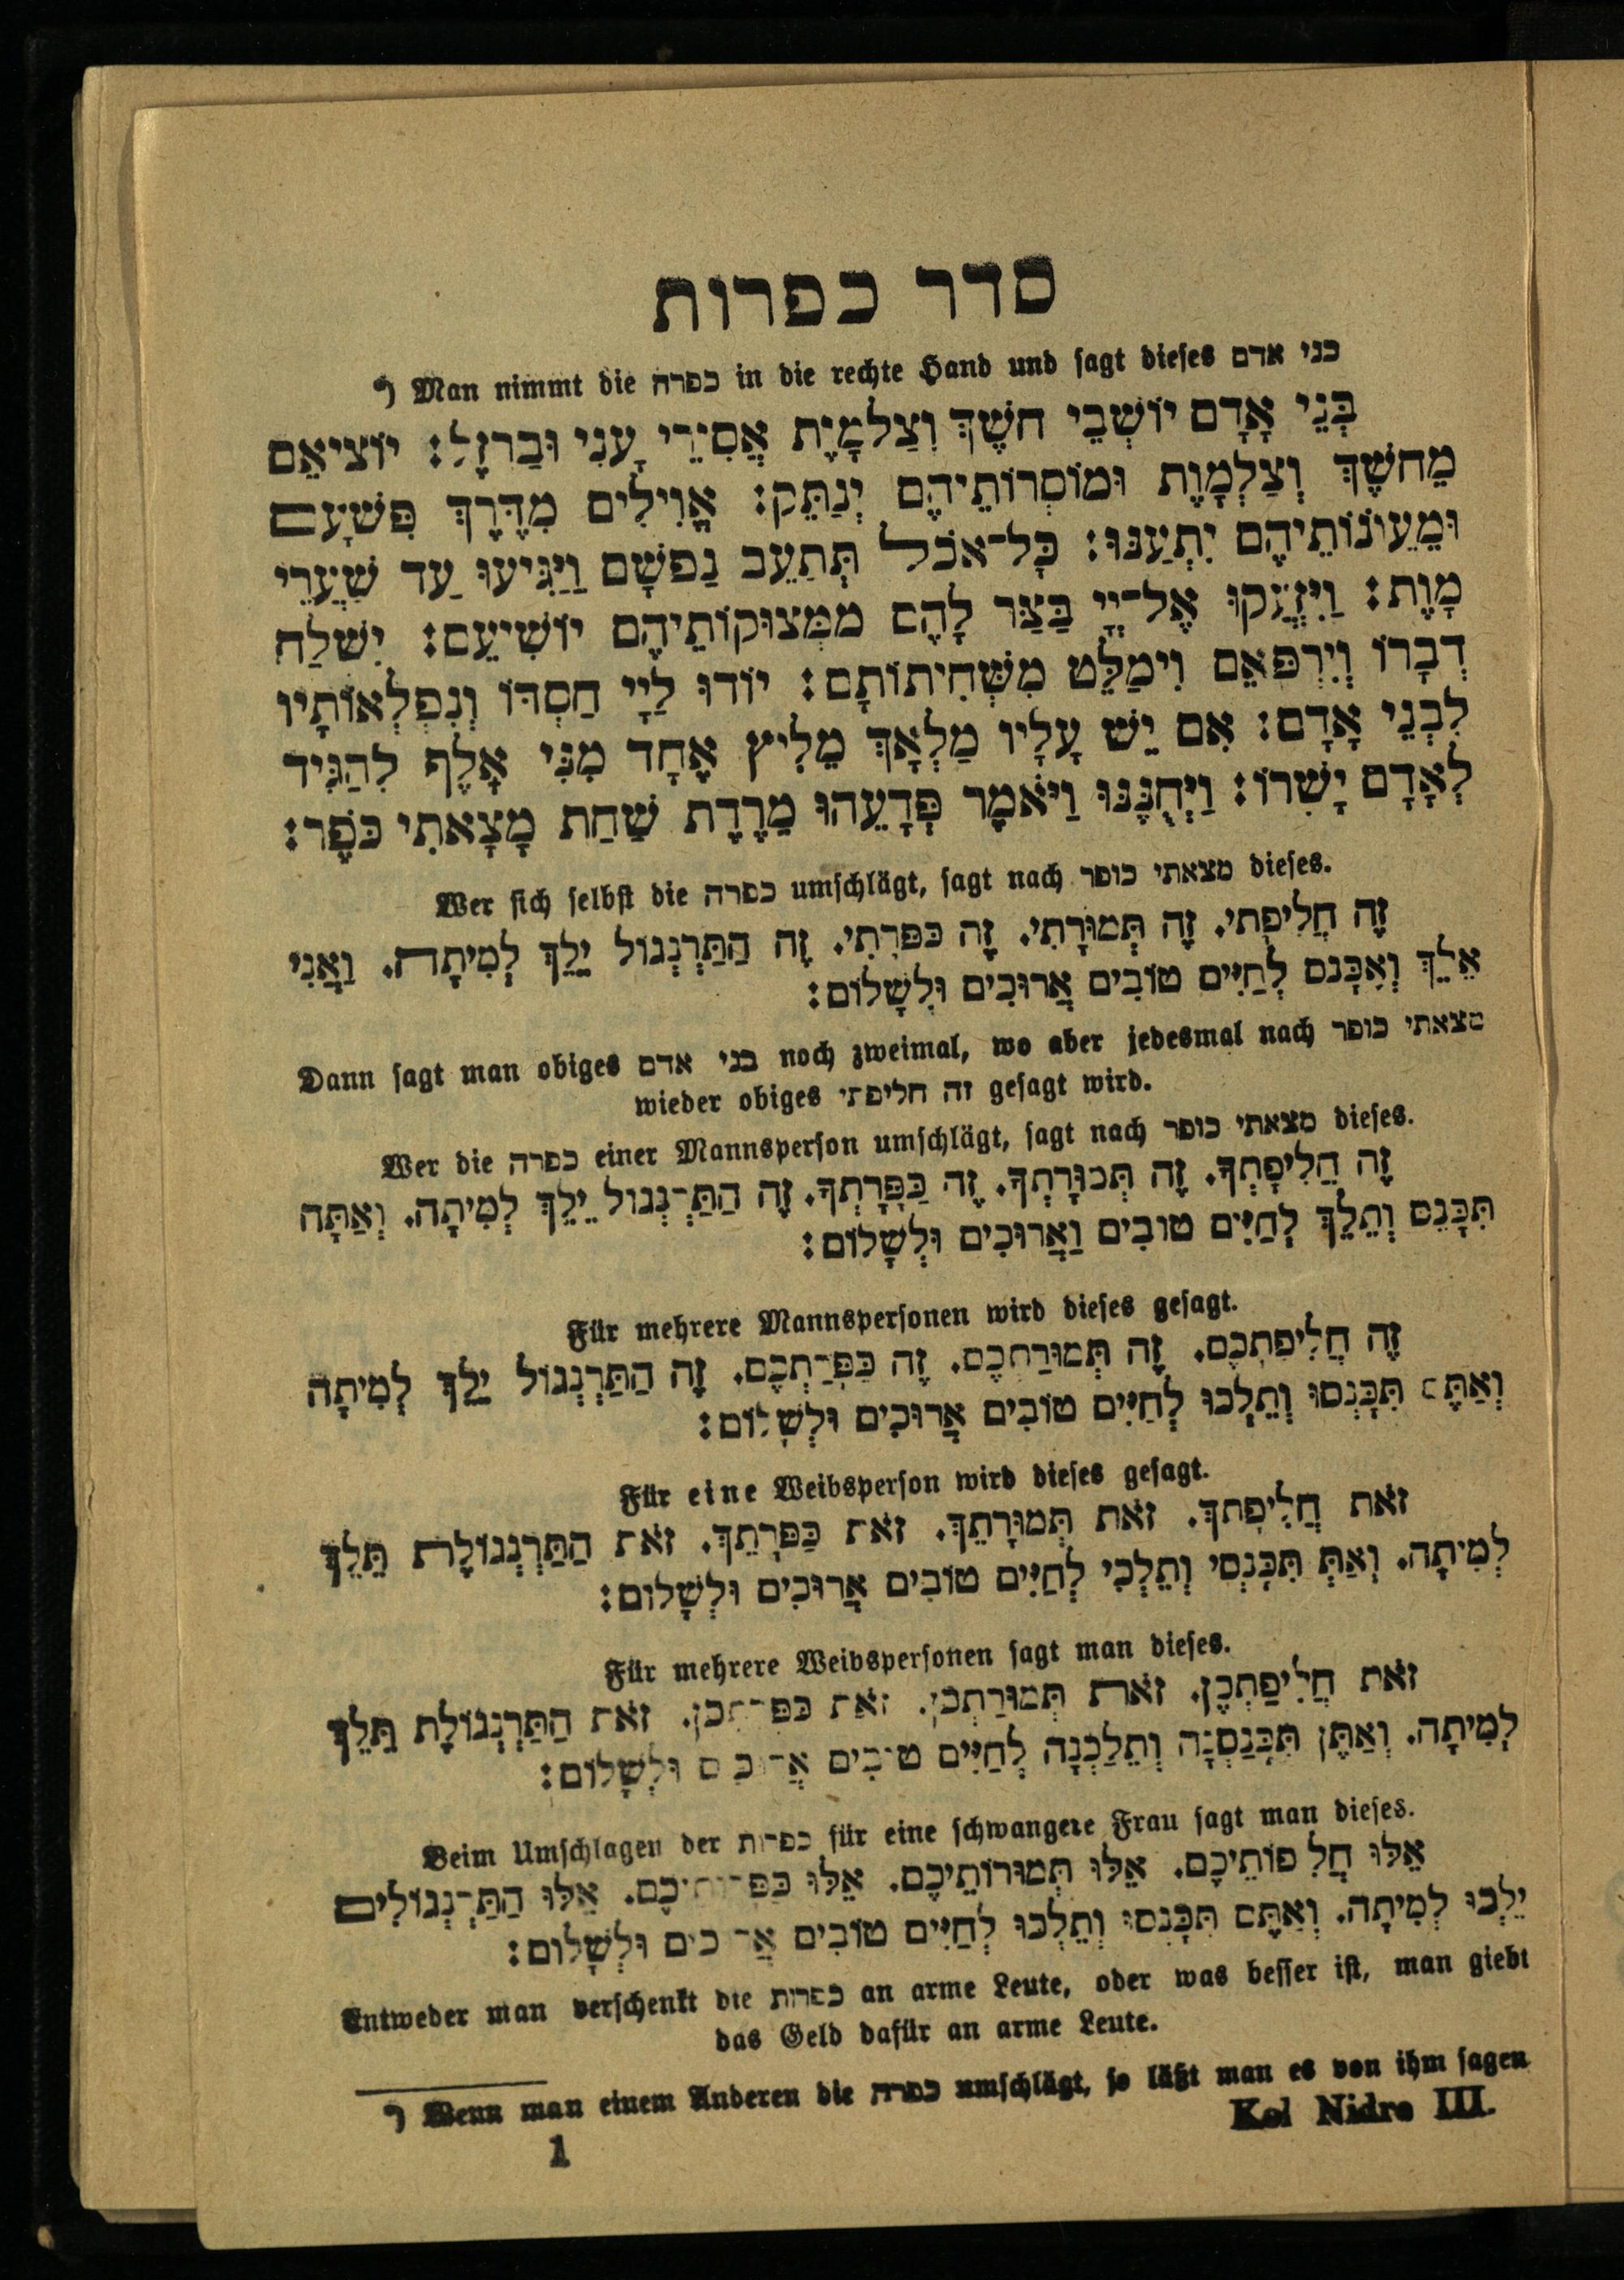 סדר כפרות
*) Man nimmt die כפרה in die rechte Hand und sagt dieses בני אדם
בְּנֵי אָדָם יוֹשְׁבֵי חשֶׁךְ וְצַלְמָוֶת אֲסִירֵי עֳנִי וּבַרְזֶל: יוֹצִיאֵם
מֵחשֶׁךְ וְצַלְמָוֶת וּמוֹסְרוֹתֵיהֶם יְנַתֵּק: אֱוִילִים מִדֶּרֶךְ פִּשְׁעָם
וּמֵעֲוֹנוֹתֵיהֶם יִתְעַנּוּ: כָּל־אֹכֶל תְּתַעֵב נַפְשָׁם וַיַּגִּיעוּ עַד שַׁעֲרֵי
מָוֶת: וַיִּזְעֲקוּ אֶל־יְיָ בַּצַּר לָהֶם מִמְּצוּקוֹתֵיהֶם יוֹשִׁיעֵם: יִשְׁלַח
דְּבָרוֹ וְיִרְפָּאֵם וִימַלֵּט מִשְּׁחִיתוֹתָם: יוֹדוּ לַיְיָ חַסְדּוֹ וְנִפְלְאוֹתָיו
לִבְנֵי אָדָם: אִם יֵשׁ עָלָיו מַלְאָךְ מֵלִיץ אֶחָד מִנִּי אָלֶף לְהַגִּיד
לְאָדָם יָשְׁרוֹ: וַיְחֻנֶּנּוּ וַיֹּאמֶר פְּדָעֵהוּ מֵרֶדֶת שַׁחַת מָצָאתִי כֹפֶר:
Wer sich selbst die כפרה umschlägt, sagt nach מצאתי כופר dieses.
זֶה חֲלִיפָתִי. זֶה תְּמוּרָתִי. זֶה כַּפָּרָתִי. זֶה הַתַּרְנְגוֹל יֵלֵךְ לְמִיתָה. וַאֲנִי
אֵלֵךְ וְאִכָּנֵס לְחַיִּים טוֹבִים אֲרוּכִים וּלְשָׁלוֹם:
Dann sagt man obiges בני אדם noch zweimal, wo aber jedesmal nach מצאתי כופר
wieder obiges זה חליפתי gesagt wird.
Wer die כפרה einer Mannsperson umschlägt, sagt nach מצאתי כופר dieses.
זֶה חֲלִיפָתְךָ. זֶה תְּמוּרָתְךָ. זֶה כַּפָּרָתְךָ. זֶה הַתַּרְנְגוֹל יֵלֵךְ לְמִיתָה. וְאַתָּה
תִּכָּנֵס וְתֵלֵךְ לְחַיִּים טוֹבִים וַאֲרוּכִים וּלְשָׁלוֹם:
Für mehrere Mannspersonen wird dieses gesagt.
זֶה חֲלִיפַתְכֶם. זֶה תְּמוּרַתְכֶם. זֶה כַּפָּרַתְכֶם. זֶה הַתַּרְנְגוֹל יֵלֵךְ לְמִיתָה
וְאַתֶּם תִּכָּנְסוּ וְתֵלְכוּ לְחַיִּים טוֹבִים אֲרוּכִים וּלְשָׁלוֹם:
Für eine Weibsperson wird dieses gesagt.
זֹאת חֲלִיפָתֵךְ. זֹאת תְּמוּרָתֵךְ. זֹאת כַּפָּרָתֵךְ. זֹאת הַתַּרְנְגוֹלֶת תֵּלֵךְ
לְמִיתָה. וְאַתְּ תִּכָּנְסִי וְתֵלְכִי לְחַיִּים טוֹבִים אֲרוּכִים וּלְשָׁלוֹם:
Für mehrere Weibspersonen sagt man dieses.
זֹאת חֲלִיפַתְכֶן. זֹאת תְּמוּרַתְכֶן. זֹאת כַּפָּרַתְכֶן. זֹאת הַתַּרְנְגוֹלֶת תֵּלֵךְ
לְמִיתָה. וְאַתֶּן תִּכָּנַסְנָה וְתֵלַכְנָה לְחַיִּים טוֹבִים אֲרוּכִים וּלְשָׁלוֹם:
Beim Umschlagen der כפרות für eine schwangere Frau sagt man dieses.
אֵלּוּ חֲלִיפוֹתֵיכֶם. אֵלּוּ תְּמוּרוֹתֵיכֶם. אֵלּוּ כַּפָּרוֹתֵיכֶם. אֵלּוּ הַתַּרְנְגוֹלִים
יֵלְכוּ לְמִיתָה. וְאַתֶּם תִּכָּנְסוּ וְתֵלְכוּ לְחַיִּים טוֹבִים אֲרוּכִים וּלְשָׁלוֹם:
Entweder man verschenkt die כפרות an arme Leute, oder was besser ist, man giebt
das Geld dafür an arme Leute.
*) Wenn man einem Anderen die כפרה umschlägt, so läßt man es von ihm sagen
Kol Nidre III.
1